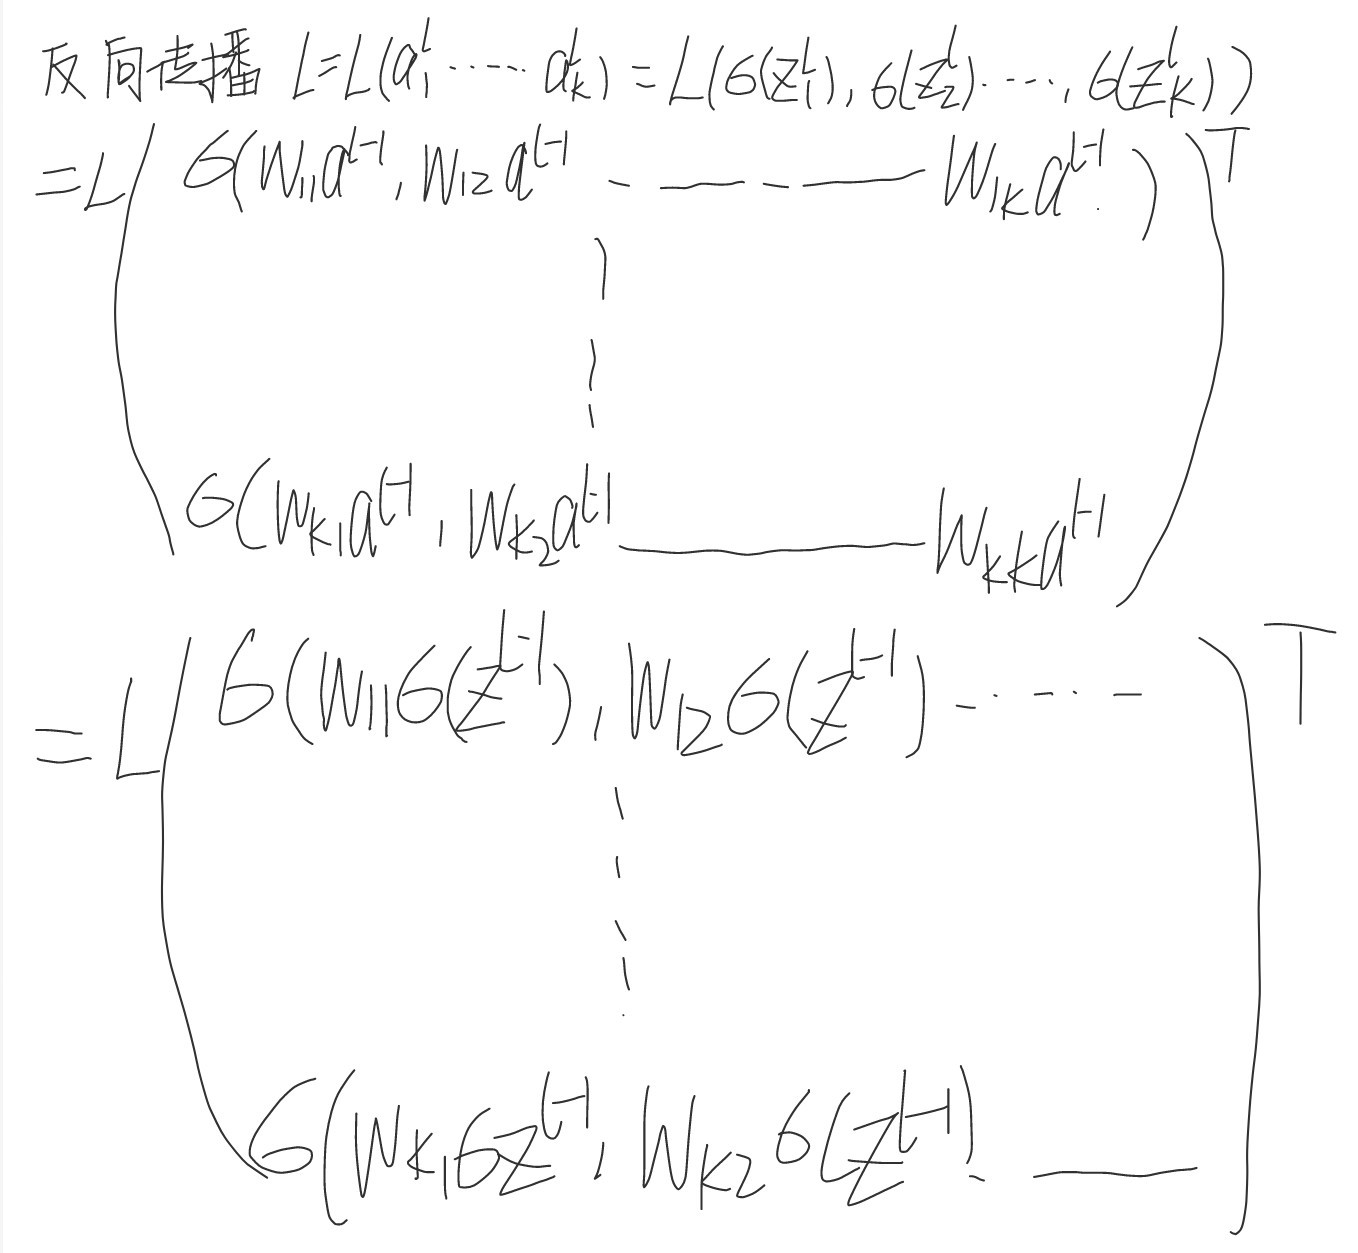 反向传播 L=L(a₁ˡ ...... aₖˡ) = L(σ(z₁ˡ), σ(z₂ˡ)....., σ(zₖˡ))
=L( σ(W₁₁aˡ⁻¹, W₁₂aˡ⁻¹ - — - — W₁ₖaˡ⁻¹.) )ᵀ
σ(Wₖ₁aˡ⁻¹, Wₖ₂aˡ⁻¹ — Wₖₖaˡ⁻¹
=L( σ(W₁₁σ(zˡ⁻¹), W₁₂σ(zˡ⁻¹) - · - · - )ᵀ
σ(Wₖ₁σzˡ⁻¹, Wₖ₂σ(zˡ⁻¹). - —